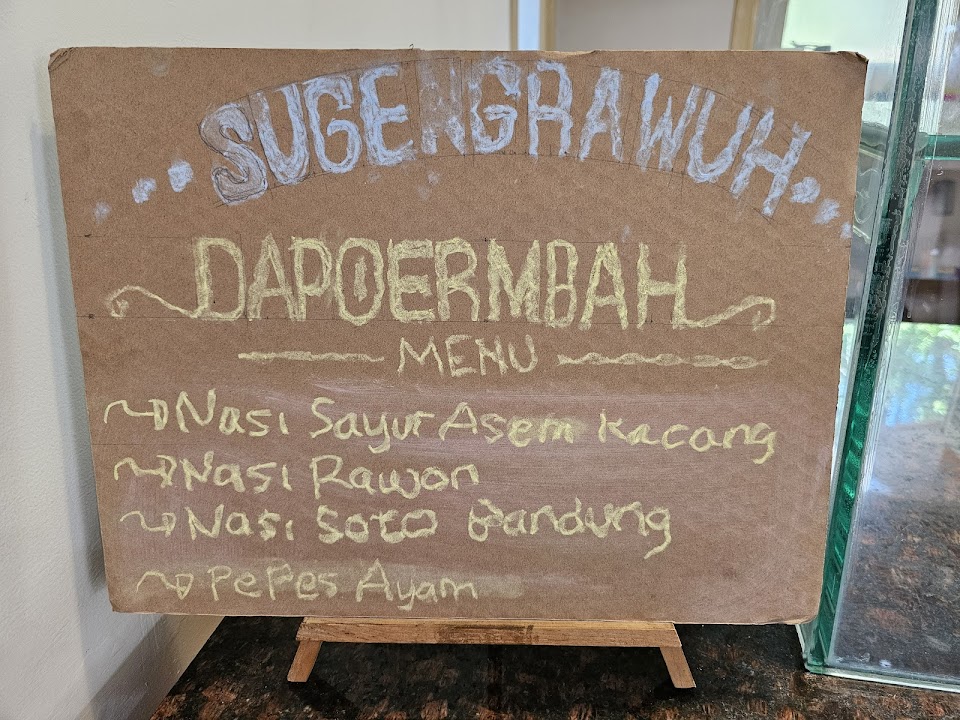 SUGENGRAWUH
DAPOERMBAH
MENU
Nasi Sayur Asem Kacang
Nasi Rawon
Nasi Soto Bandung
PePes Ayam